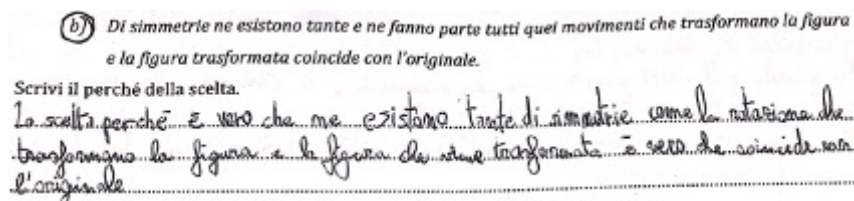 b) Di simmetrie ne esistono tante e ne fanno parte tutti quei movimenti che trasformano la figura
e la figura trasformata coincide con l'originale.
Scrivi il perché della scelta.
Lo scelta perché è vero che me esistono tante di simmetrie come la rotazione che
trasformano la figura e la figura che viene trasformata è vero che coincide con
l'originale